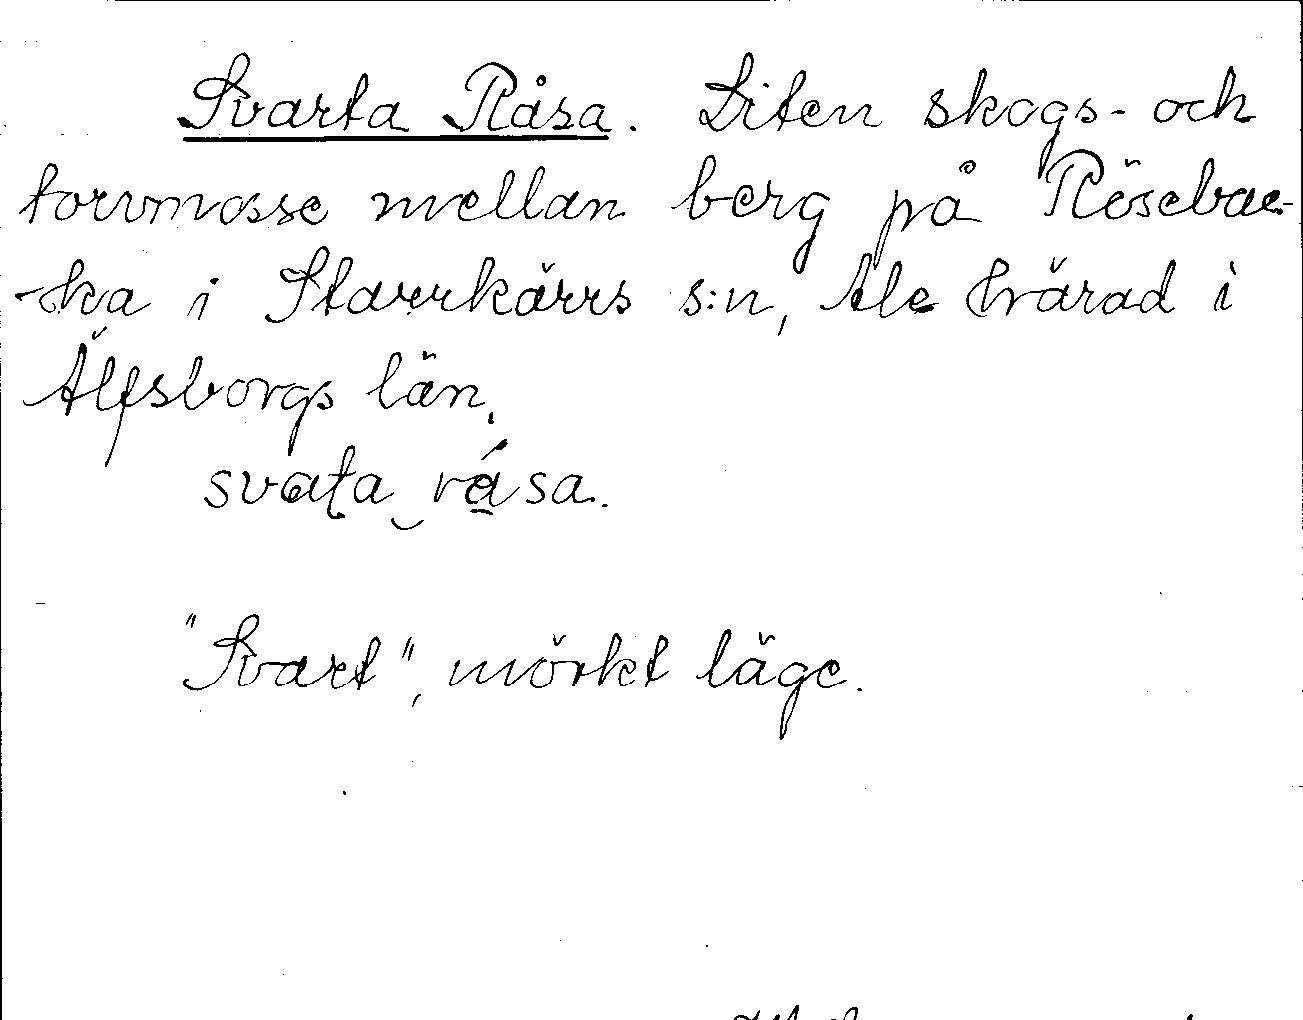 Svarta Råsa. Liten skogs- och
torvmosse mellan berg på Rösebac-
-ka i Starrkärrs s:n, Ale härad i
Älfsborgs län.
svata rása.
"Svart", mörkt läge.